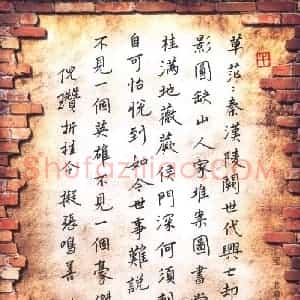 草茫:秦漢陵闕世代興亡却
影圓缺山人家堆案圖書
桂滿地薇蕨侯門深何須刺
自可怡悅到如今世事難說
不見一個英雄不見一個豪傑
倪瓚折桂 擬張鳴善